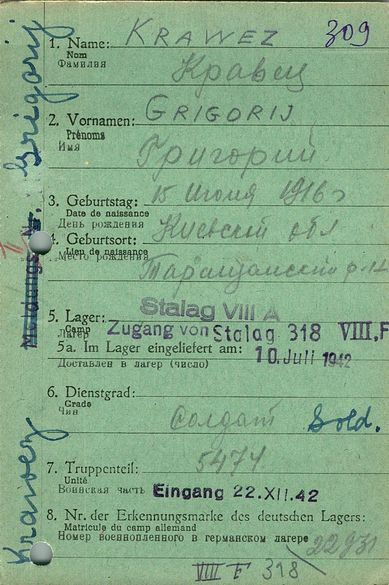 309
1. Name: KRAWEZ
Nom
Фамилия Кравец
2. Vornamen: GRIGORIJ
Prénoms
Имя Григорий
3. Geburtstag: 15 Июня 1916 г
Date de naissance
День рождения Киевской обл
4. Geburtsort:
Lieu de naissance
Место рождения Таращанский р-н
Stalag VIII A
5. Lager:
Camp
Лагерь Zugang von Stalag 318 VIII.F
5a. Im Lager eingeliefert am: 10. Juli 1942
Доставлен в лагерь (число)
6. Dienstgrad:
Grade
Чин Солдат Sold.
7. Truppenteil: 5474
Unité
Воинская часть Eingang 22.XII.42
8. Nr. der Erkennungsmarke des deutschen Lagers:
Matricule du camp allemand
Номер военнопленного в германском лагере 22931
VIII F 318
Krawez Grigorij
Meldungs Nr.